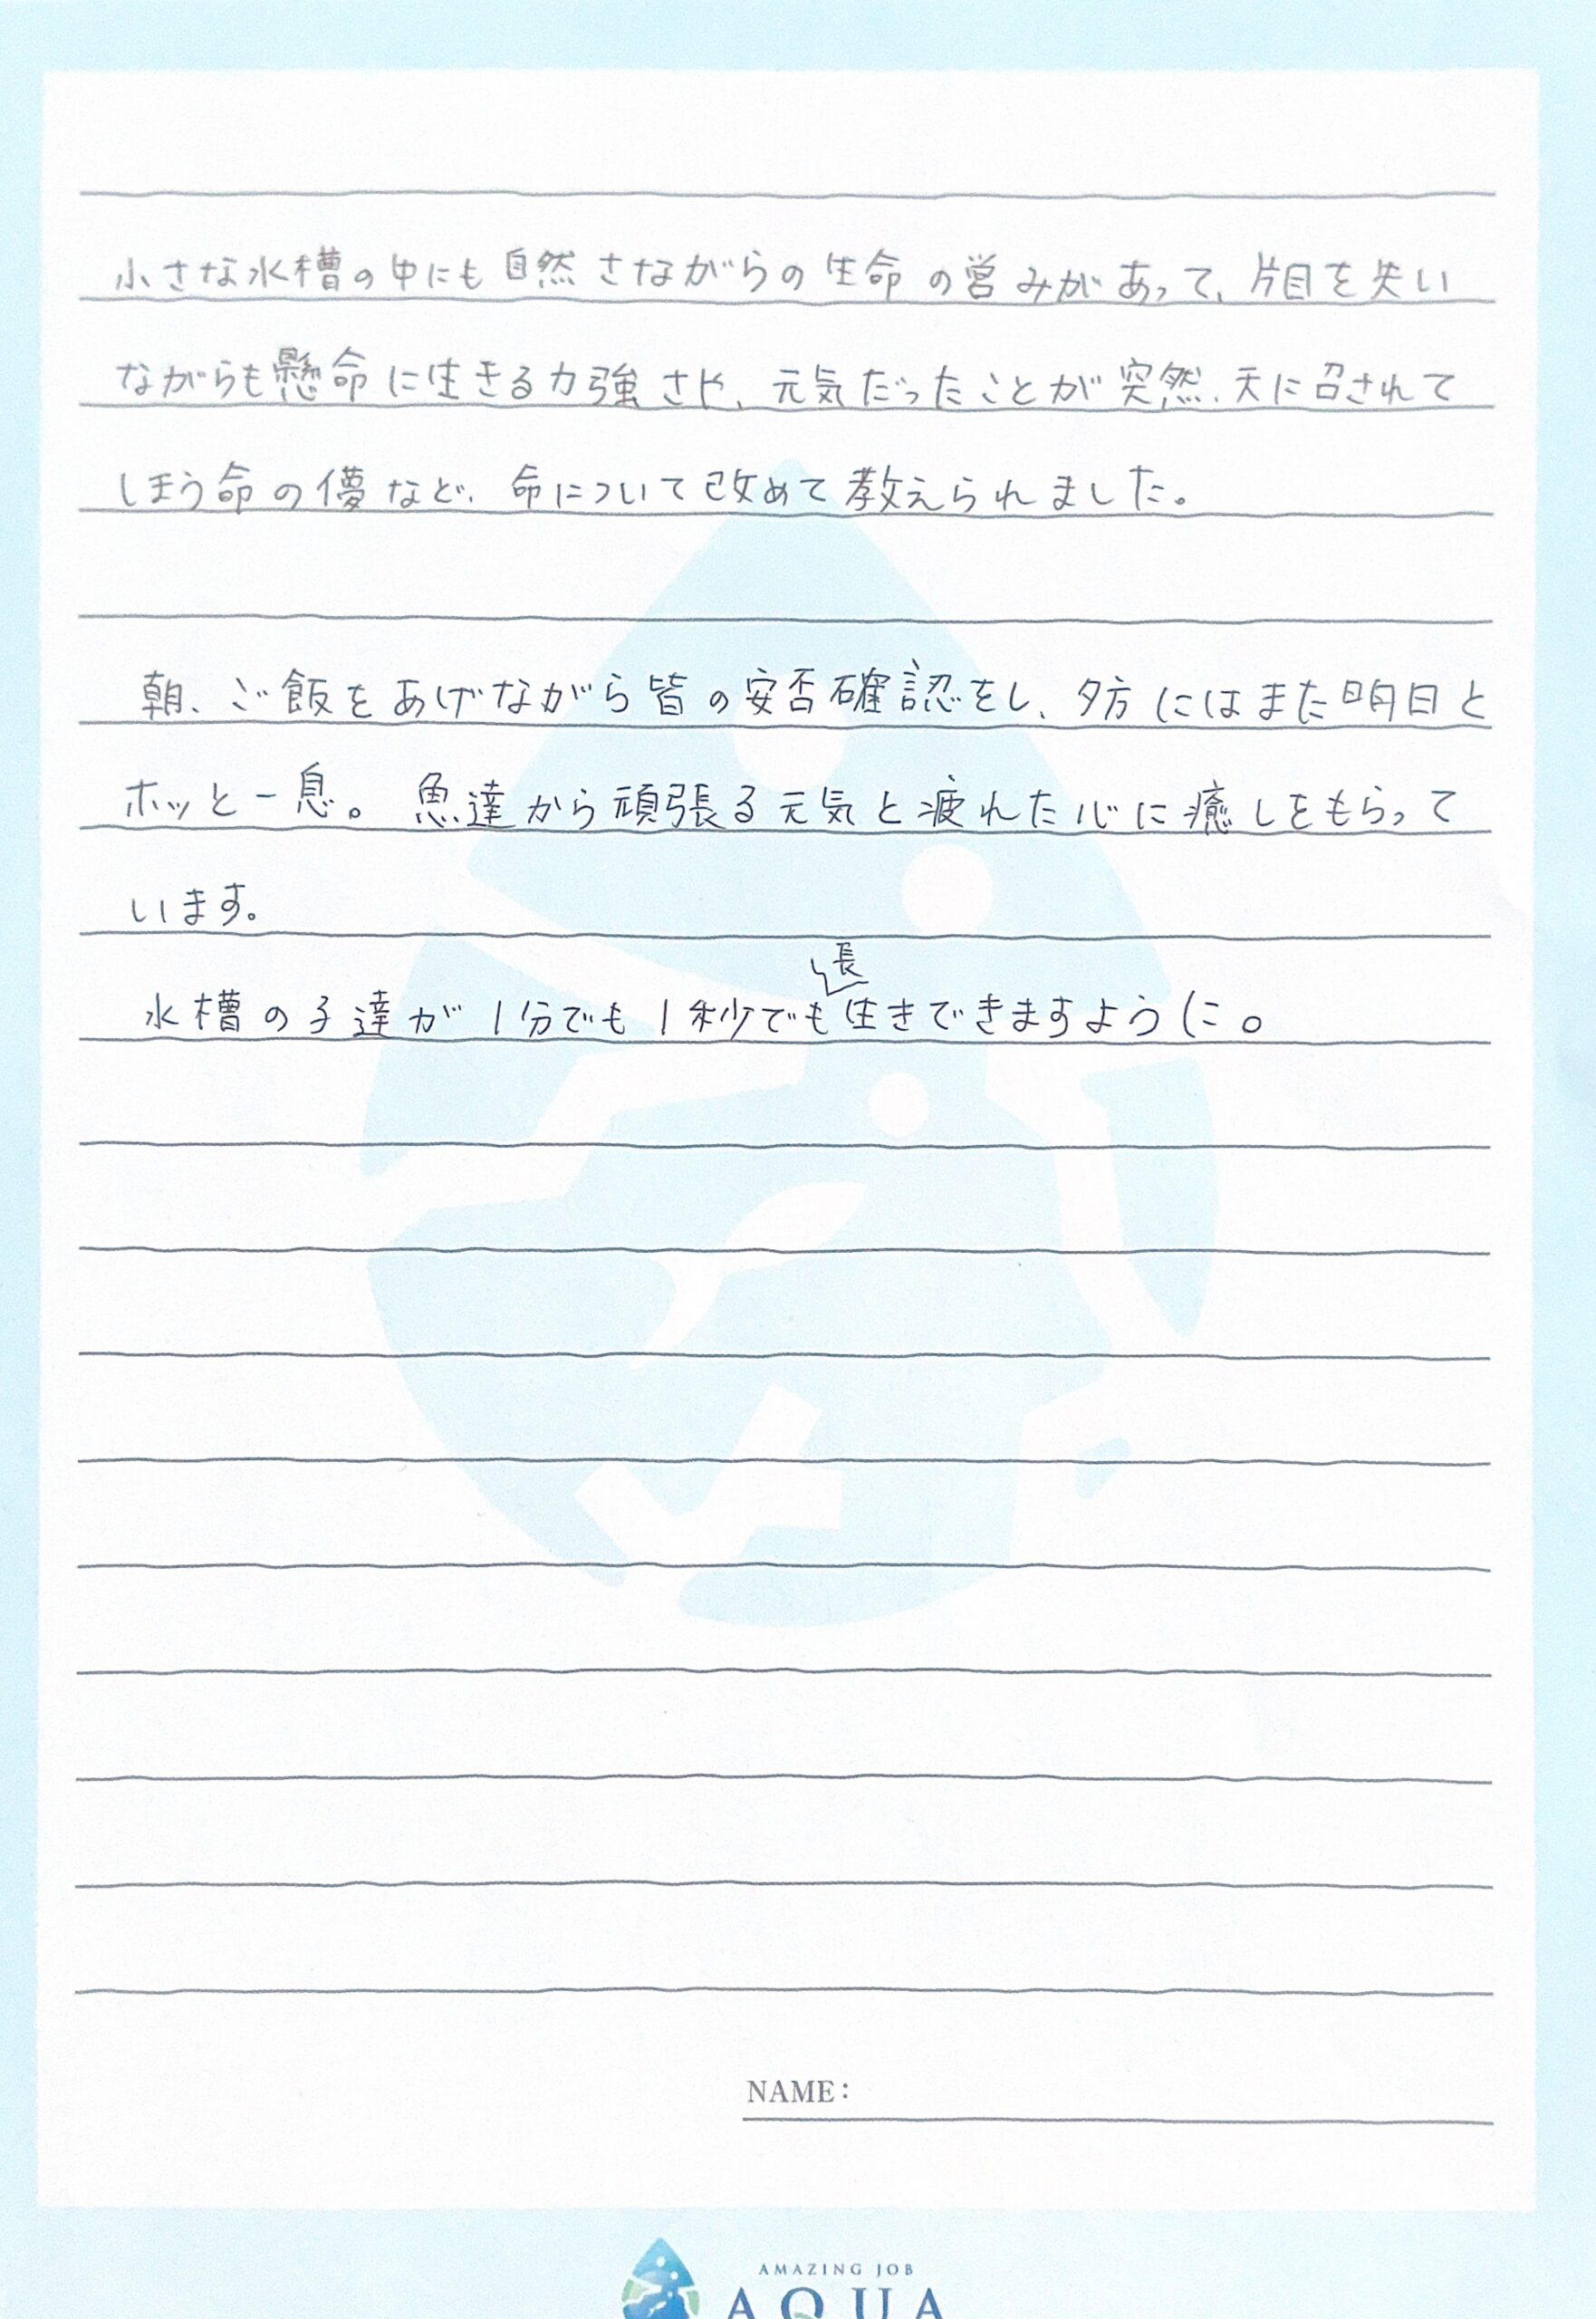 小さな水槽の中にも自然さながらの生命の営みがあって、片目を失い
ながらも懸命に生きる力強さや、元気だったことが突然、天に召されて
しまう命の儚など、命について改めて教えられました。
朝、ご飯をあげながら皆の安否確認をし、夕方にはまた明日と
ホッと一息。魚達から頑張る元気と疲れた心に癒しをもらって
います。
水槽の子達が1分でも1秒でも長生きできますように。
NAME:
AMAZING JOB
AQUA